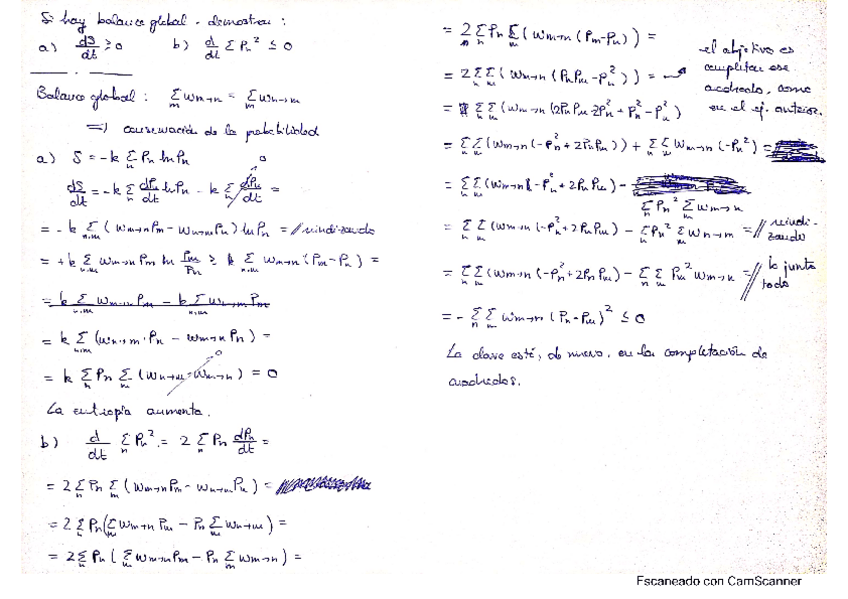 Si hay balance global, demostrar:
a) dS/dt ≥ 0 b) d/dt Σ_n P_n² ≤ 0
Balance global: Σ_m w_m→n = Σ_m w_n→m
⟹ conservación de la probabilidad
a) S = -k Σ_n P_n ln P_n
dS/dt = -k Σ_n dP_n/dt ln P_n - k Σ_n dP_n/dt =
0
= -k Σ_n,m (w_m→n P_m - w_n→m P_n) ln P_n = // reindizando
= +k Σ_n,m w_m→n P_m ln P_m/P_n ≥ k Σ_n,m w_m→n (P_m - P_n) =
= k Σ_n,m w_m→n P_m - k Σ_n,m w_n→m P_m
= k Σ_n,m (w_n→m P_n - w_m→n P_n) =
= k Σ_n P_n Σ_m (w_n→m - w_m→n) = 0
0
La entropía aumenta.
b) d/dt Σ_n P_n² = 2 Σ_n P_n dP_n/dt =
= 2 Σ_n P_n Σ_m (w_m→n P_m - w_n→m P_n) =
= 2 Σ_n P_n (Σ_m w_m→n P_m - P_n Σ_m w_n→m) =
= 2 Σ_n P_n (Σ_m w_m→n P_m - P_n Σ_m w_m→n) =
= 2 Σ_n P_n Σ_m (w_m→n (P_m - P_n)) =
= 2 Σ_n Σ_m (w_m→n (P_n P_m - P_n²)) =
el objetivo es
completar ese
cuadrado, como
en el ej. anterior.
= Σ_n Σ_m (w_m→n (2P_n P_m - 2P_n² + P_n² - P_n²)
= Σ_n Σ_m (w_m→n (-P_n² + 2P_n P_m)) + Σ_n Σ_m w_m→n (-P_n²) =
= Σ_n Σ_m (w_m→n (-P_n² + 2P_n P_m) -
Σ_n P_n² Σ_m w_m→n
= Σ_n Σ_m (w_m→n (-P_n² + 2P_n P_m) - Σ_n P_n² Σ_m w_n→m = // reindi-
zando
= Σ_n Σ_m (w_m→n (-P_n² + 2P_n P_m) - Σ_n Σ_m P_m² w_m→n = // lo junto
todo
= - Σ_n Σ_m w_m→n (P_n - P_m)² ≤ 0
La clave está, de nuevo, en la completación de
cuadrados.
Escaneado con CamScanner